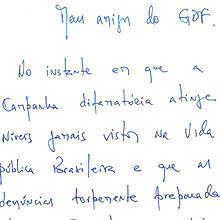 Meu amigo do GDF.
No instante em que a
Campanha difamatória atinge
Níveis jamais vistos na Vida
pública Brasileira e que as
denúncias torpemente preparada